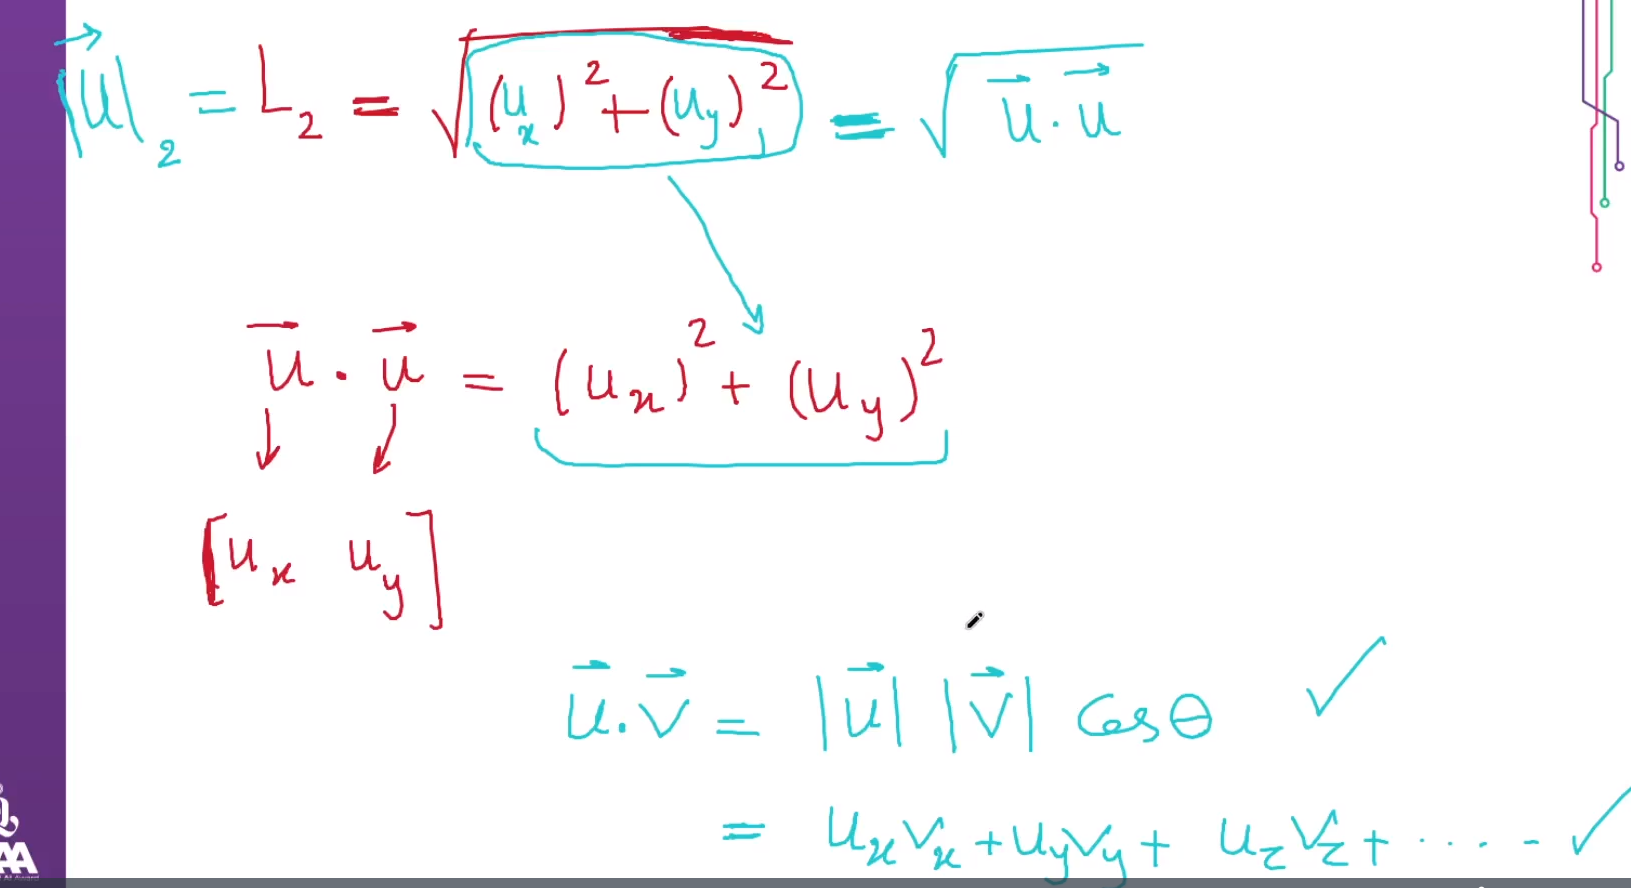 |u⃗|₂ = L₂ = √((uₓ)² + (u_y)²) = √(u⃗ · u⃗)
u⃗ · u⃗ = (uₓ)² + (u_y)²
[uₓ u_y]
u⃗ · v⃗ = |u⃗| |v⃗| Cos θ ✓
= uₓvₓ + u_yv_y + u_zv_z + ..... ✓